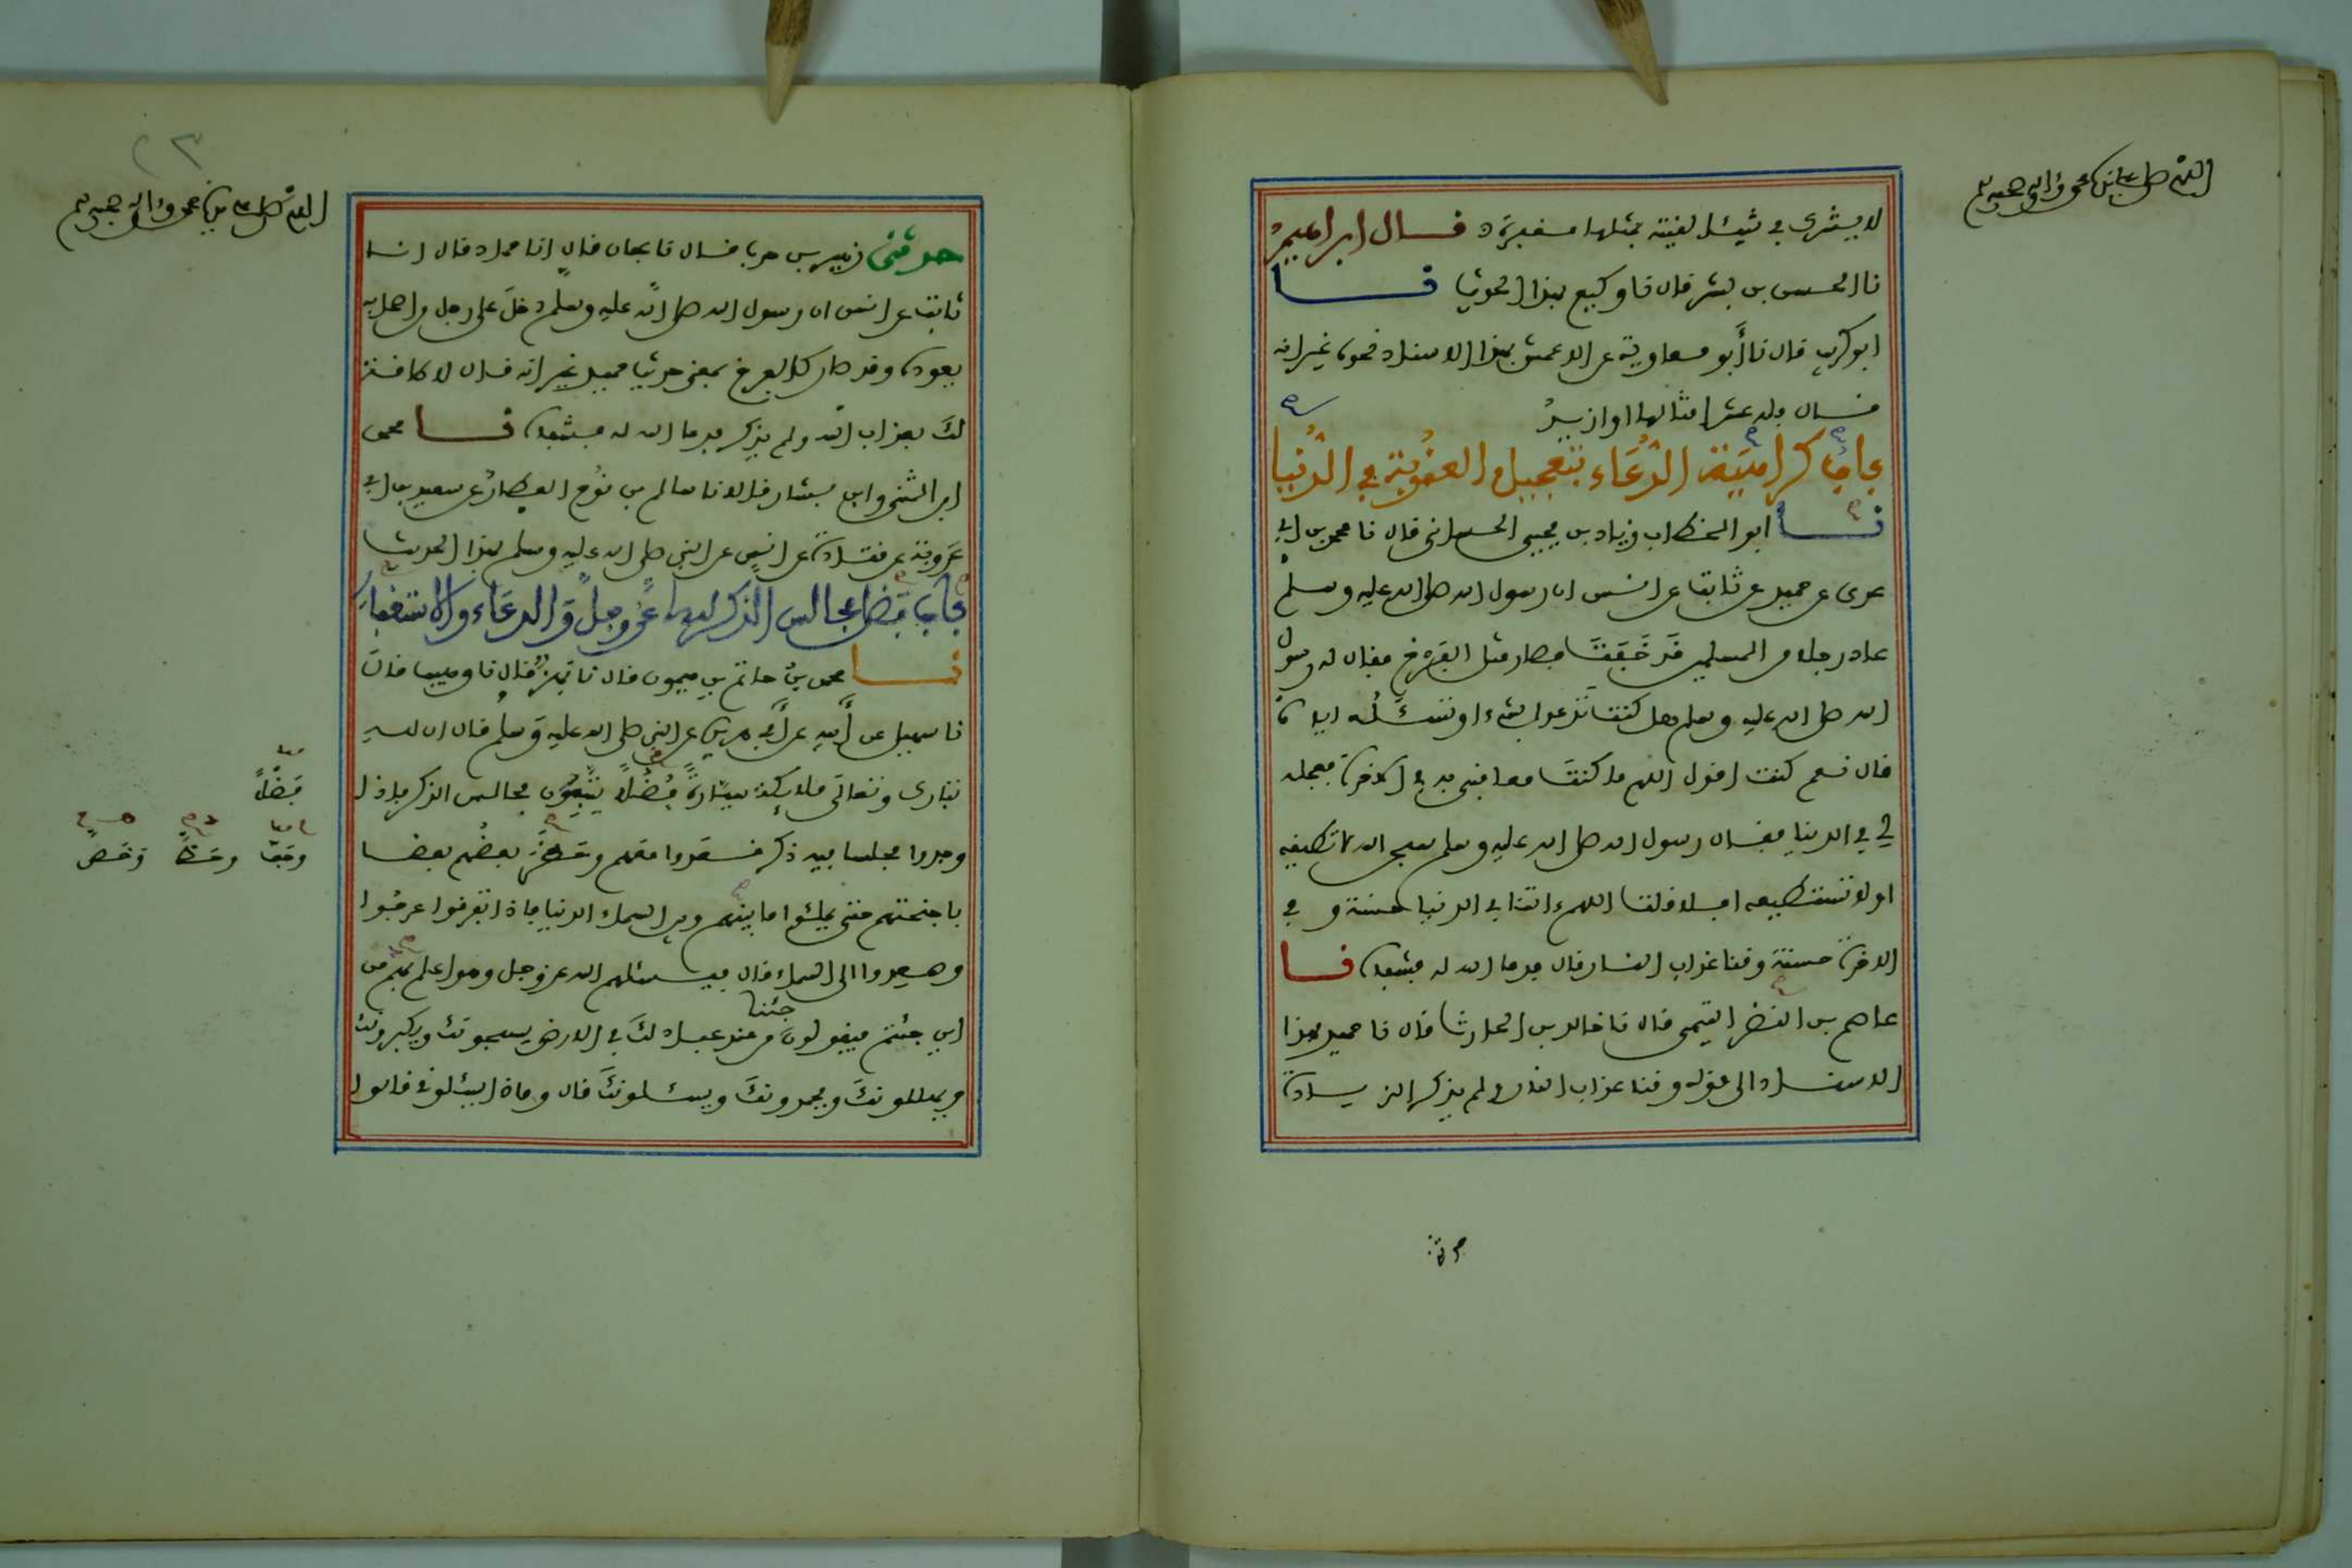 اللهم صل على نبيك محمد وءاله وصحبه وسلم
لا يشرك بي شيئا لقيته بمثلها مغفرة قال ابراهيم
نا الحسن بن بشر قال نا وكيع بهذا الحديث نا
ابو كريب قال نا أبو معاوية عن الاعمش بهذا الاسناد نحوه غير انه
قال فله عشر امثالها او ازيد
باب كراهية الدعاء بتعجيل العقوبة في الدنيا
نا ابو الخطاب زياد بن يحيى الحساني قال نا محمد بن ابي
عدي عن حميد عن ثابت عن انس ان رسول الله صلى الله عليه وسلم
عاد رجلا من المسلمين قد خفت فصار مثل الفرخ فقال له رسول
الله صلى الله عليه وسلم هل كنت تدعوا بشيء او تسئله اياه
قال نعم كنت اقول اللهم ما كنت معاقبني به في الاخرة فعجله
لي في الدنيا فقال رسول الله صلى الله عليه وسلم سبحن الله لا تطيقه
او لا تستطيعه افلا قلت اللهم ءاتنا في الدنيا حسنة وفي
الاخرة حسنة وقنا عذاب النار قال فدعا الله له فشفاه نا
عاصم بن النضر التيمي قال نا خالد بن الحارث قال نا حميد بهذا
الاسناد الى قوله وقنا عذاب النار ولم يذكر الزيادة
حدثنى
اللهم صل على نبيك محمد وءاله وصحبه وسلم
حدثنى زهير بن حرب قال نا عفان قال انا حماد قال انا
ثابت عن انس ان رسول الله صلى الله عليه وسلم دخل على رجل من اصحابه
يعوده وقد صار كالفرخ بمعنى حديث حميد غير انه قال لا طاقة
لك بعذاب الله ولم يذكر فدعا الله له فشفاه نا محمد
ابن المثنى وابن بشار قالا نا سالم بن نوح العطار عن سعيد بن ابي
عروبة عن قتادة عن انس عن النبي صلى الله عليه وسلم بهذا الحديث
باب فضل مجالس الذكر لله عز وجل والدعاء والاستغفار
نا محمد بن حاتم بن ميمون قال نا بهز قال نا وهيب قال
نا سهيل عن أبيه عن أبي هريرة عن النبي صلى الله عليه وسلم قال ان لله
تبارك وتعالى ملائكة سيارة فضلا يتبعون مجالس الذكر فاذا
وجدوا مجلسا فيه ذكر قعدوا معهم وحف بعضهم بعضا
باجنحتهم حتى يملئوا ما بينهم وبين السماء الدنيا فاذا تفرقوا عرجوا
وصعدوا الى السماء قال فيسئلهم الله عز وجل وهو اعلم بهم من
اين جئتم فيقولون جئنا من عند عباد لك في الارض يسبحونك ويكبرونك
ويهللونك ويحمدونك ويسئلونك قال وماذا يسئلوني قالوا
فضلا
وحف وحط وحض